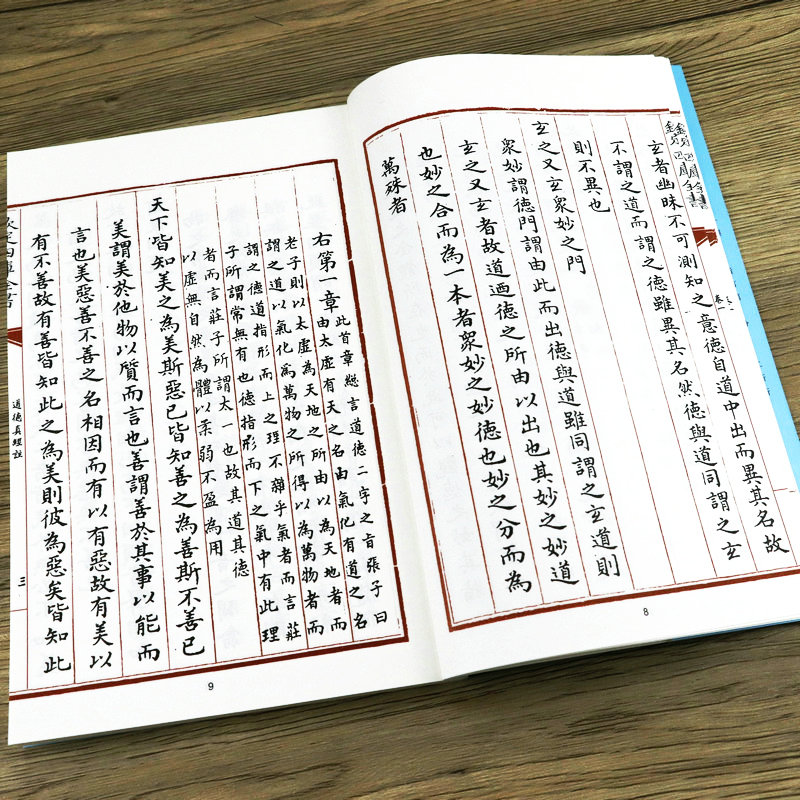 玄者幽昧不可測知之意德自道中出而異其名故
不謂之道而謂之德雖異其名然德與道同謂之玄
則不異也
玄之又玄眾妙之門
眾妙謂德門謂由此而出德與道雖同謂之玄道則
玄之又玄者故道迺德之所由以出也其妙之妙道
也妙之合而為一本者眾妙之妙德也妙之分而為
萬殊者
8
右第一章
此首章總言道德二字之旨張子曰
由太虛有天之名由氣化有道之名
老子則以太虛為天地之所由以為天地者而
謂之道以氣化為萬物之所得以為萬物者而
謂之德道指形而上之理不雜乎氣者而言莊
子所謂常無有也德指形而下之氣中有此理
者而言莊子所謂太一也故其道其德
以虛無自然為體以柔弱不盈為用
天下皆知美之為美斯惡已皆知善之為善斯不善已
美謂美於他物以質而言也善謂善於其事以能而
言也美惡善不善之名相因而有以有惡故有美以
有不善故有善皆知此之為美則彼為惡矣皆知此
欽定四庫全書
道德真經註
三
9